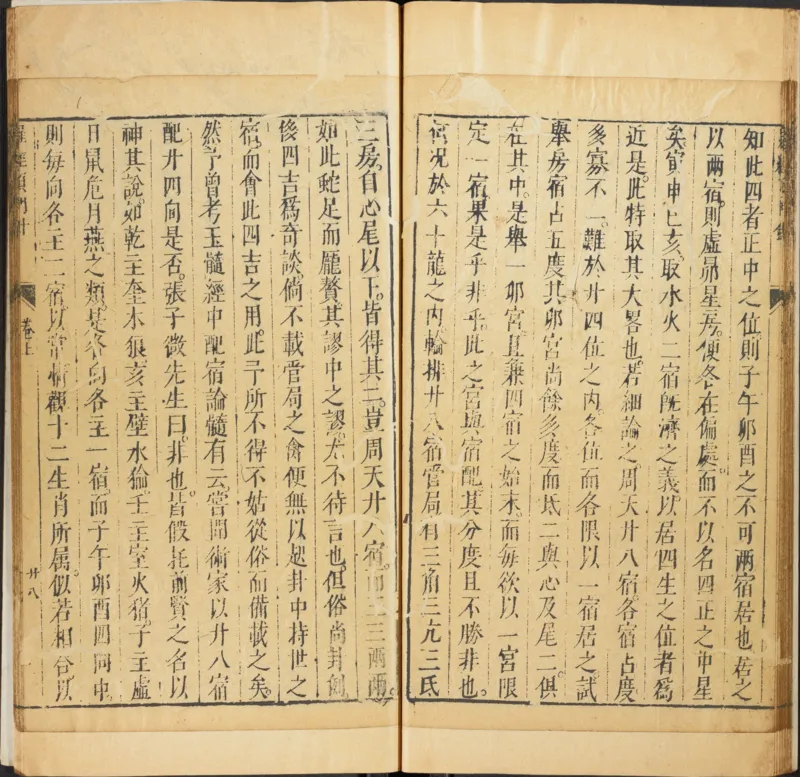 知此四者正中之位則子午卯酉之不可兩宿居也若之
以兩宿則虛昴星房便各在偏處而不以名四正之中星
矣寅申巳亥取水火二宿旣濟之義以居四生之位者爲
近是此特取其大畧也若細論之周天廿八宿各宿占度
多寡不一難於廿四位之內各位而各限以一宿居之試
舉房宿占五度其卯宮尚餘亥度而氐二與心及尾二俱
在其中是舉一卯宮且兼四宿之始末而每欲以一宮限
定一宿果是乎非乎此之宮與宿配其分度且不勝非也
何况於六十龍之內輪排廿八宿管局有三角三亢三氐
三房自心尾以下皆得其二豈周天廿八宿而三三兩兩
如此蛇足而龎贅其謬中之謬尤不待言也但俗尚卦例
後四吉爲奇談倘不載管局之禽便無以起卦中持世之
宿而會此四吉之用此予所不得不姑從俗而備載之矣
然予曾考玉髓經中配宿論髓有云嘗聞術家以廿八宿
配廿四向是否張子微先生曰非也皆假托前賢之名以
神其說如乾主奎木狼亥主壁水㺄壬主室火猪子主虛
日鼠危月燕之類是各向各主一宿而子午卯酉四向中
則每向各主二宿以常情觀十二生肖所属似若相合以
羅經頂門針
卷上
廿八